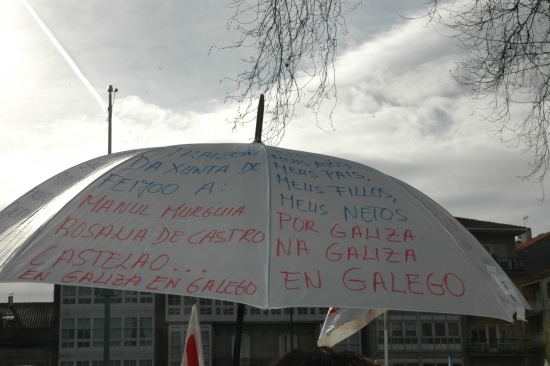 TRAIZÓN
DA XUNTA DE
FEIJOO A:
MANUL MURGUIA
ROSALIA DE CASTRO
CASTELAO...
EN GALIZA EN GALEGO
MEUS AVÓS,
MEUS PAIS,
MEUS FILLOS,
MEUS NETOS
POR GALIZA.
NA GALIZA
EN GALEGO